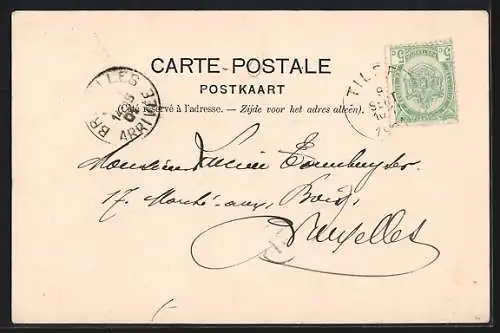 CARTE-POSTALE
POSTKAART
(Côté réservé à l'adresse. — Zijde voor het adres alleen).
BRUXELLES
ARRIVÉE
TILFF
Monsieur Lucien
17. Marché-aux-Bois,
Bruxelles